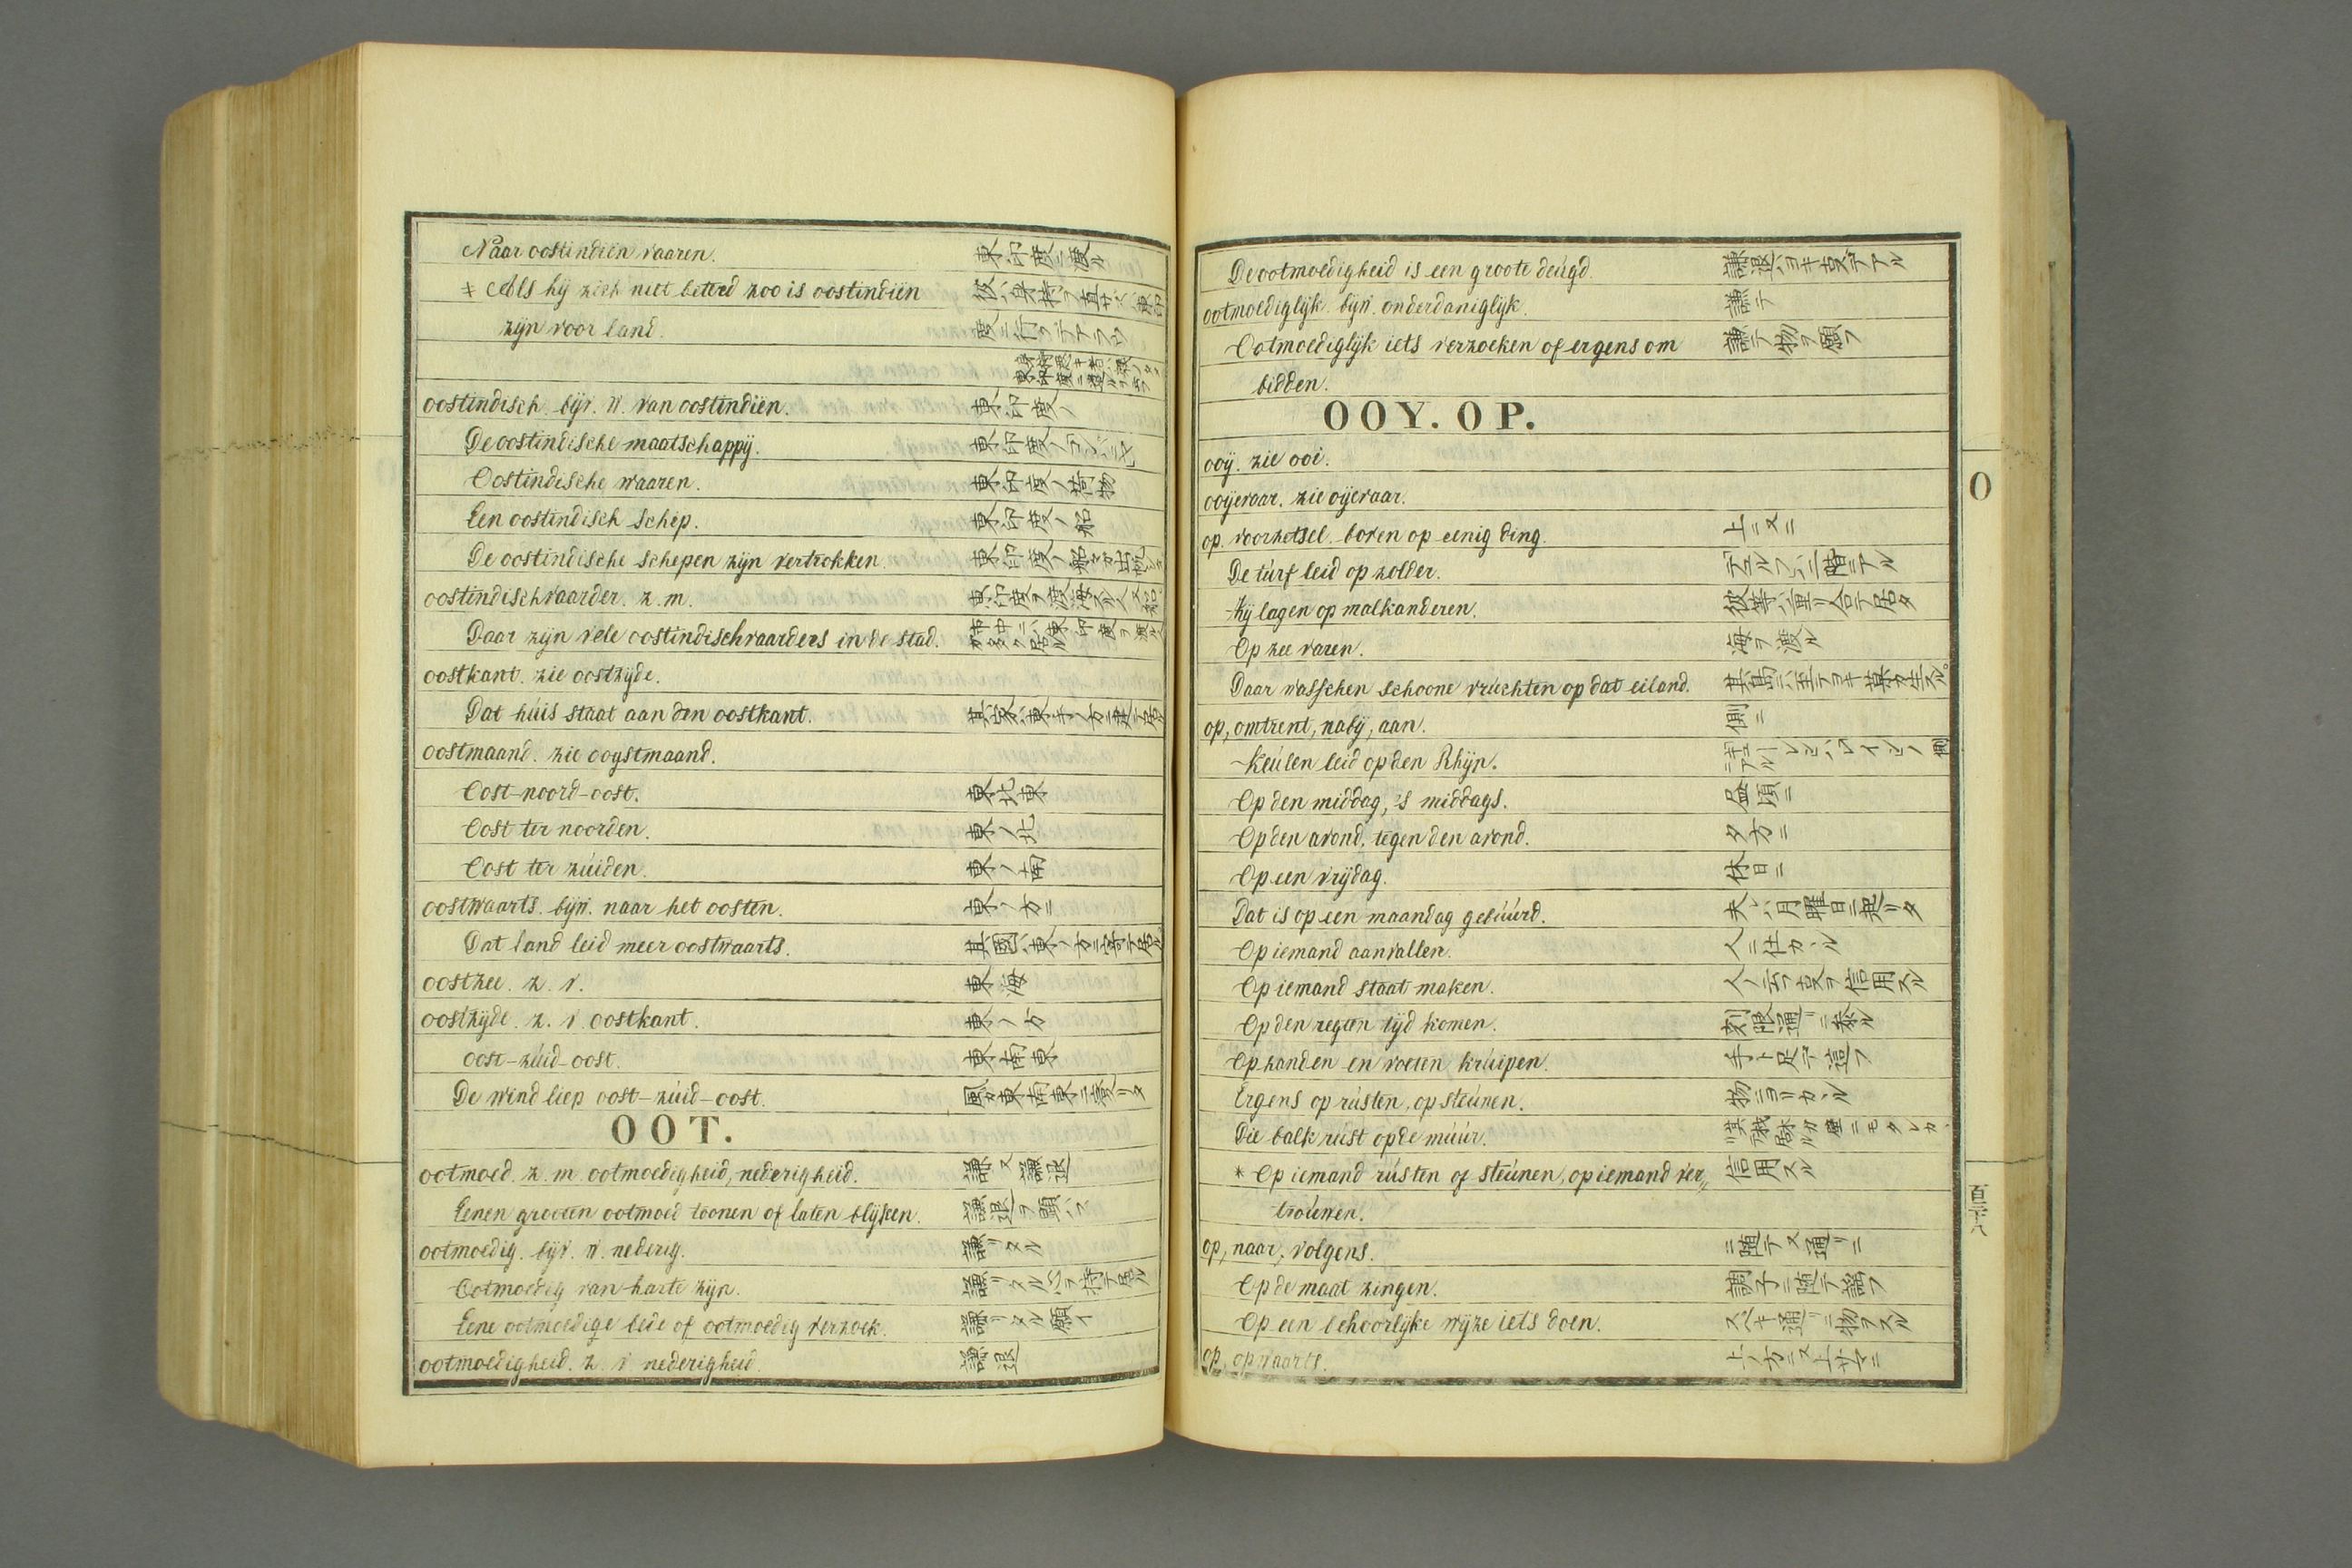 Naar oostindien vaaren. 東印度ニ渡ル
‡ Als hij zich niet beterd zoo is oostindiën 彼ハ身持ヲ直サズバ東印
zijn voor land. 度ニ行クデアラウ
oostindisch. bijv. w. van oostindiën. 東印度ノ
De oostindische maatschappij. 東印度ノコンパニヤ
Oostindische waaren. 東印度ノ荷物
Een oostindisch schip. 東印度ノ船
De oostindische schepen zijn vertrokken. 東印度ノ船ガ出帆シタ
oostindischvaarder. z. m. 東印度ヲ渡海スル人又船
Daar zijn vele oostindischvaarders in de stad. 市中ニハ東印度ヲ渡ル人ガ多ク居ル
oostkant. zie oostzijde.
Dat húis staat aan den oostkant. 其家ハ東手ノ方ニ建テ居ル
oostmaand. zie oogstmaand.
Oost-noord-oost. 東北東
Oost ter noorden. 東ノ北
Oost ter zúiden. 東ノ南
oostwaarts. bijw. naar het oosten. 東ノ方ニ
Dat land leid meer oostwaarts. 其國ハ東ノ方ニ寄テ居ル
oostzee. z. v. 東海
oostzijde. z. v. oostkant. 東ノ方
oost-zúid-oost. 東南東
De wind liep oost-zúid-oost. 風ガ東南東ニ変リタ
OOT.
ootmoed. z. m. ootmoedigheid, nederigheid. 謙又謙退
Eenen grooten ootmoed toonen of laten blijken. 謙退ヲ顕ハス
ootmoedig. bijv. w. nederig. 謙リタル
Ootmoedig van harte zijn. 謙リタル心ヲ持テ居ル
Eene ootmoedige bede of ootmoedig verzoek. 謙リタル願イ
ootmoedigheid. z. v. nederigheid. 謙退
De ootmoedigheid is een groote deúgd. 謙退ハヨキ叓デアル
ootmoediglijk. bijw. onderdaniglijk. 謙テ
Ootmoediglijk iets verzoeken of ergens om 謙テ物ヲ願フ
bidden.
OOY. OP.
ooij. zie ooi.
ooijevaar. zie oijevaar.
op. voorzetsel. boven op eenig ding. 上ニ又ニ
De túrf leid op zolder. テュルフハ二階ニアル
Zij lagen op malkanderen. 彼等ハ重リ合テ居タ
Op zee varen. 海ヲ渡ル
Daar wasschen schoone vrúchten op dat eiland. 其島ニハ至テヨキ菓ガ生スル。
op, omtrent, nabij, aan. 側ニ
Keúlen leid op den Rhijn. キューレンハレインノ側ニアル
Op den middag, 's middags. 昼頃ニ
Op den avond, tegen den avond. 夕方ニ
Op een vrijdag. 休日ニ
Dat is op een maandag gebúúrd. 夫レハ月曜日ニ起リタ
Op iemand aanvallen. 人ニ仕カヽル
Op iemand staat maken. 人ノ云フ叓ヲ信用スル
Op den regten tijd komen. 刻限通リニ来ル
Op handen en voeten krúipen. 手ト足デ這フ
Ergens op rústen, op steúnen. 物ニヨリカヽル
Die balk rúst op de múúr.
* Op iemand rústen of steúnen, op iemand ver„ 信用スル
troúwen.
op, naar, volgens. ニ随テ又通リニ
Op de maat zingen. 調子ニ随テ謡フ
Op een behoorlijke wijze iets doen. スベキ通リニ物ヲスル
op, opwaarts. 上ノ方ニ又上サマニ
O
百三十八